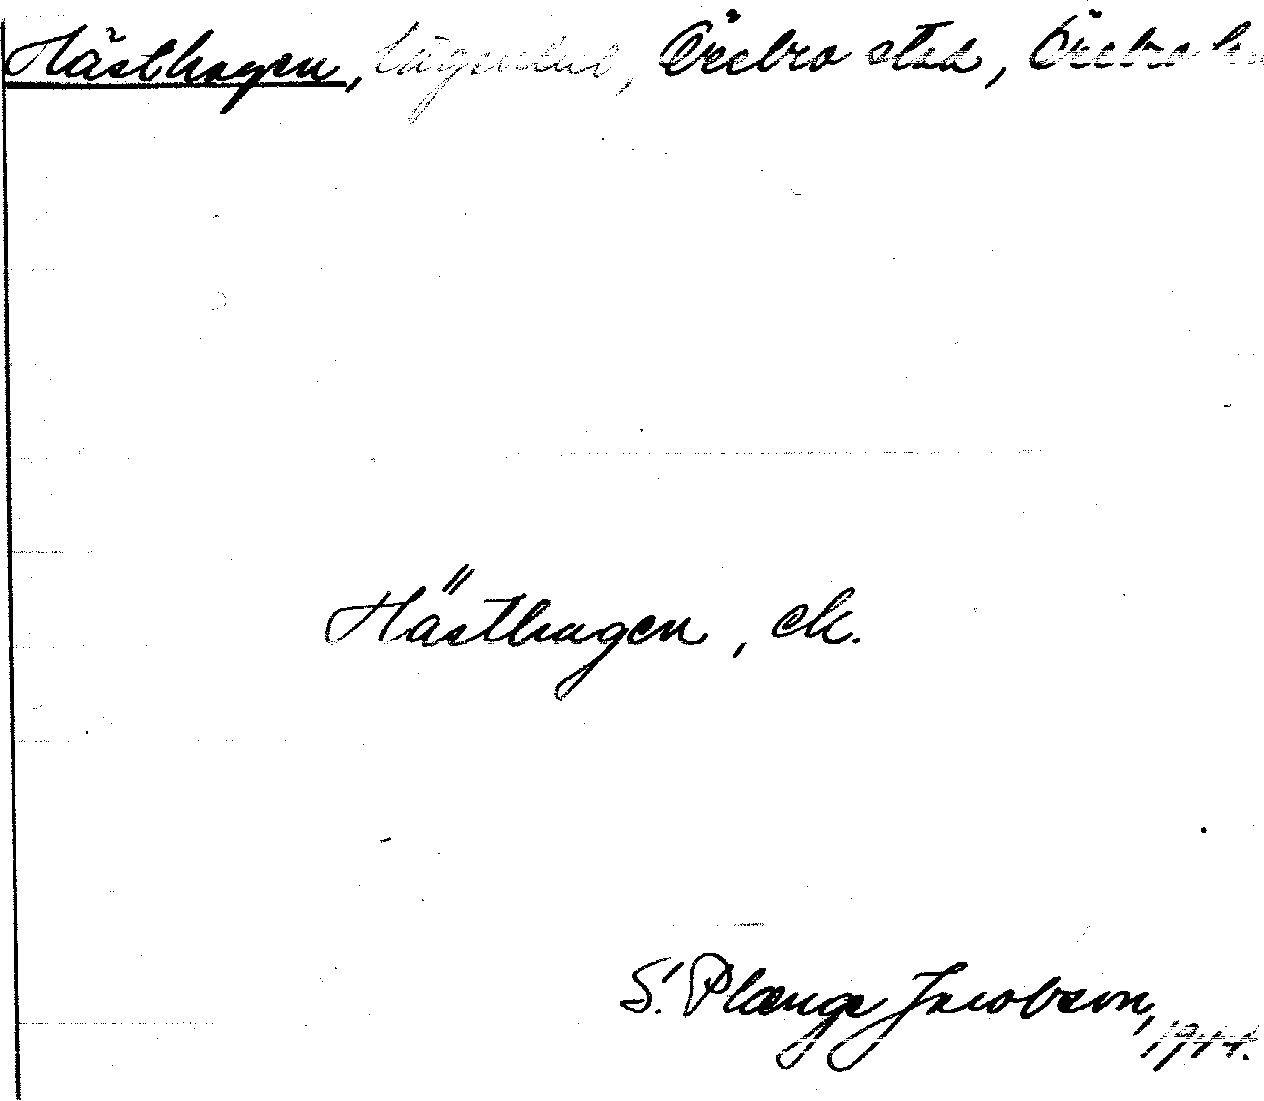 Hästhagen, lägenhet, Örebro stad, Örebro
Hästhagen, ek.
S. Plænge Jacobson,
1944.